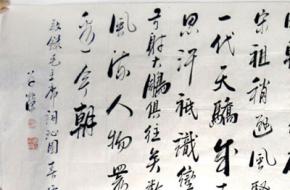 宋祖稍逊風
一代天驕成
思汗祇識彎
弓射大鵰俱往矣數
風流人物還
看今朝
毛主席词沁园春